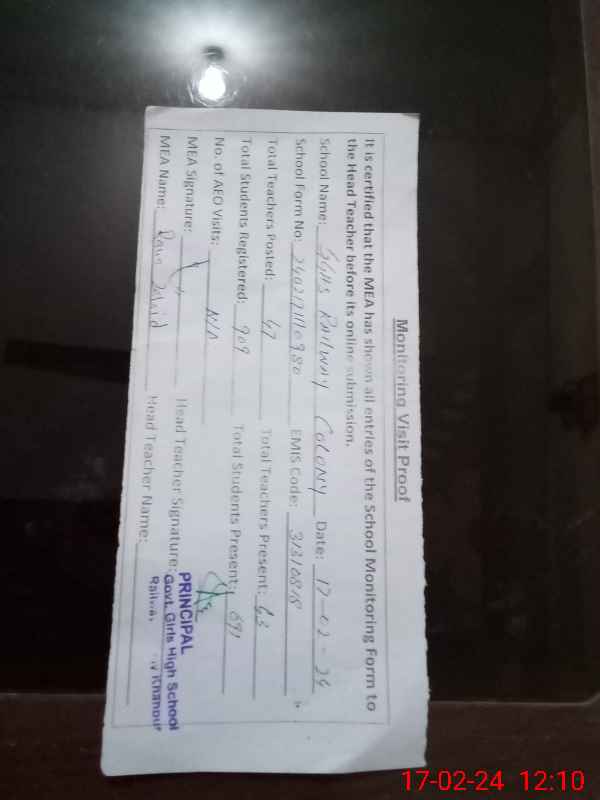 Monitoring Visit Proof
It is certified that the MEA has shown all entries of the School Monitoring Form to
the Head Teacher before its online submission.
School Name: GGHS RAILWAY COLONY Date: 17-02-24
School Form No: EMIS Code: 31310818
Total Teachers Posted: 47 Total Teachers Present: 43
Total Students Registered: 909 Total Students Present: 691
No. of AEO Visits: N/A
MEA Signature: Head Teacher Signature:
MEA Name: Head Teacher Name:
PRINCIPAL
Govt. Girls High School
Railway Khanpur
17-02-24 12:10